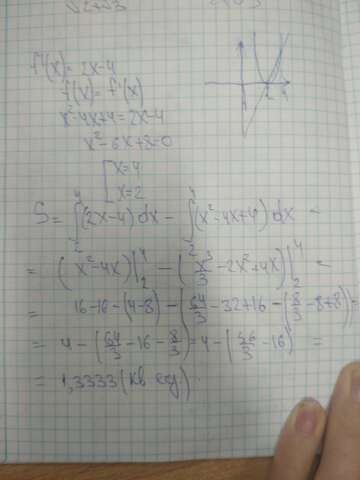 f'(x)= 2x-4
f(x)= f'(x)
x²-4x+4=2x-4
x²-6x+8=0
[x=4
[x=2
2 4
S= ∫₂⁴(2x-4)dx - ∫₂⁴(x²-4x+4)dx =
= (x²-4x)|₂⁴ - (x³/3 -2x²+4x)|₂⁴ =
= 16-16-(4-8) - (64/3 -32+16-(8/3 -8+8))=
= 4-(64/3 -16-8/3)=4-(56/3 -16) =
= 1,3333(кв. ед.)